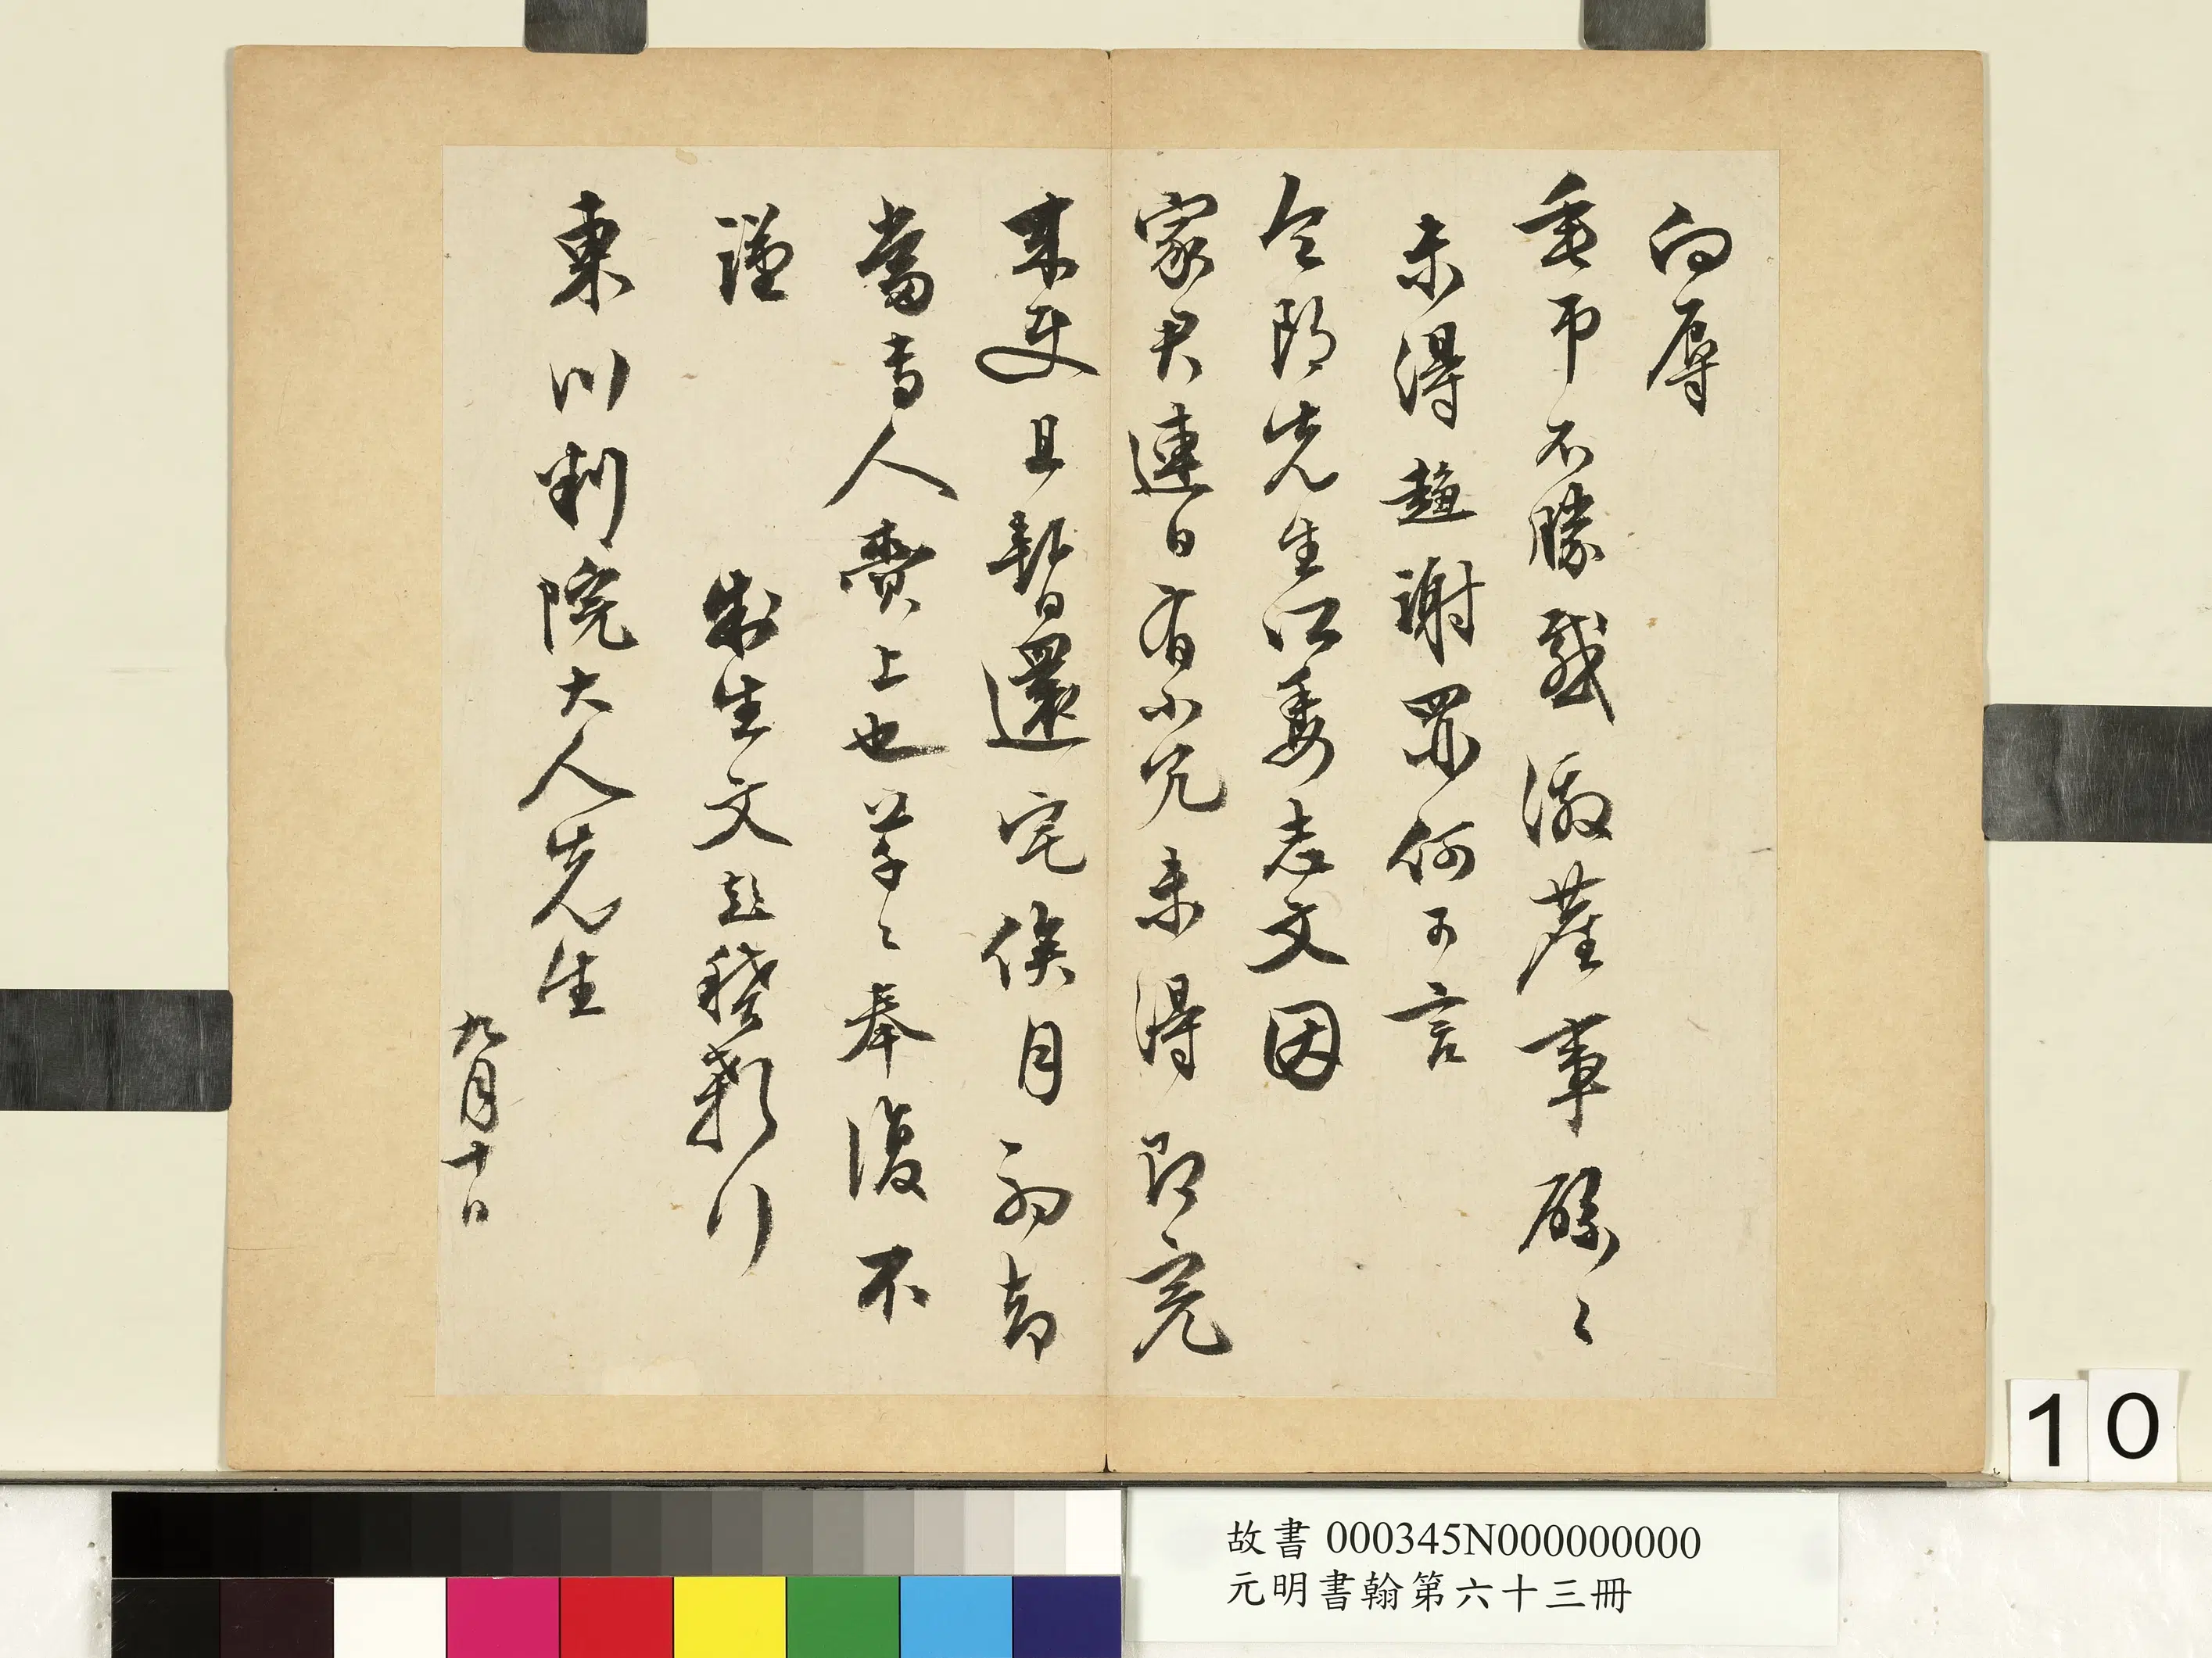 向辱
垂弔不勝感激薩事碌〻
未得趨謝罪何可言
令郎先生江委志文因
家君連日有小冗未得即完
來使且暫還宅俟月初却
當專人賫上也草〻奉復不
謹
制生文彭稽顙
東川判院大人先生
九月十日
10
故書 000345N000000000
元明書翰第六十三冊